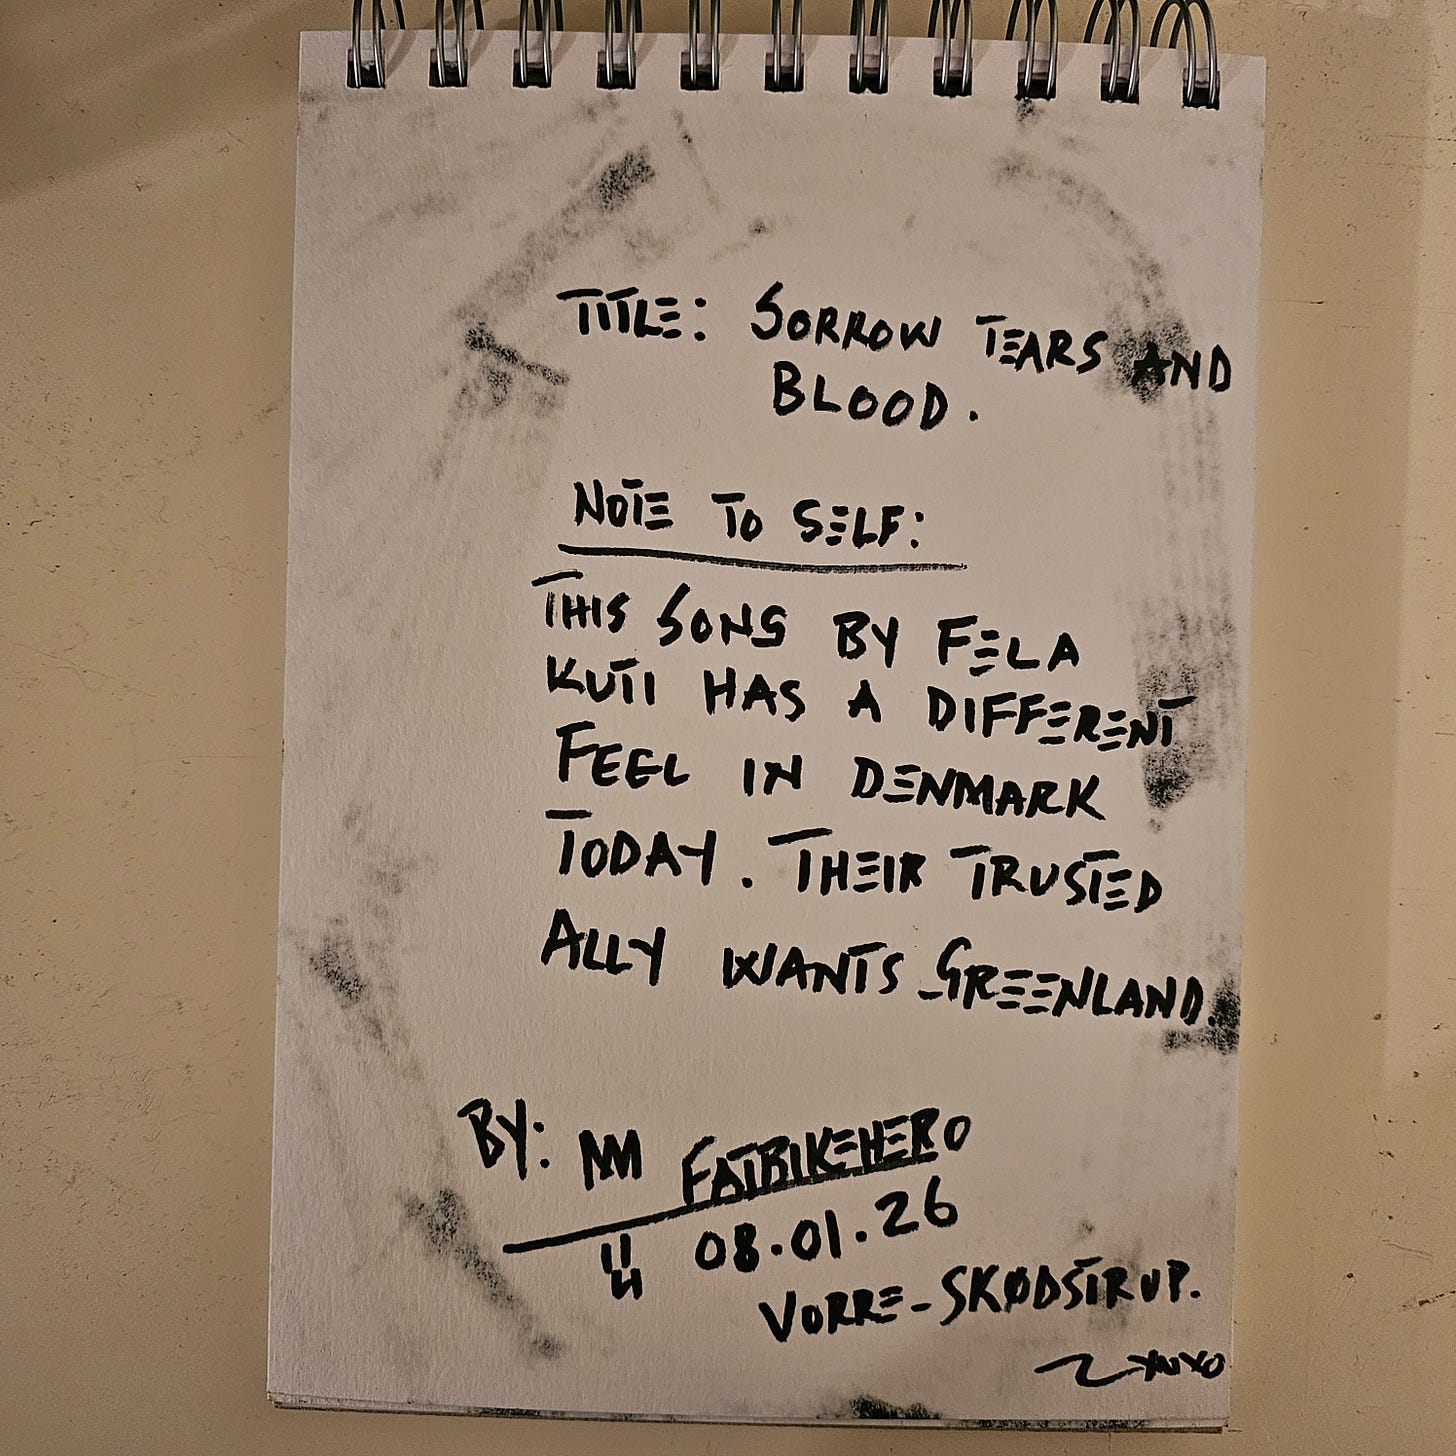 TITLE: SORROW TEARS AND
BLOOD.
NOTE TO SELF:
THIS SONG BY FELA
KUTI HAS A DIFFERENT
FEEL IN DENMARK
TODAY. THEIR TRUSTED
ALLY WANTS GREENLAND.
BY: NM FATBIKEHERO
08.01.26
VORRE-SKØDSTRUP.